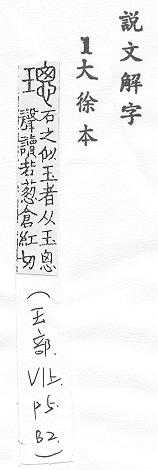 説文解字
1大徐本
璁 石之似玉者从玉悤
聲讀若蔥倉紅切
(玉部. V1上. P5. B2.)